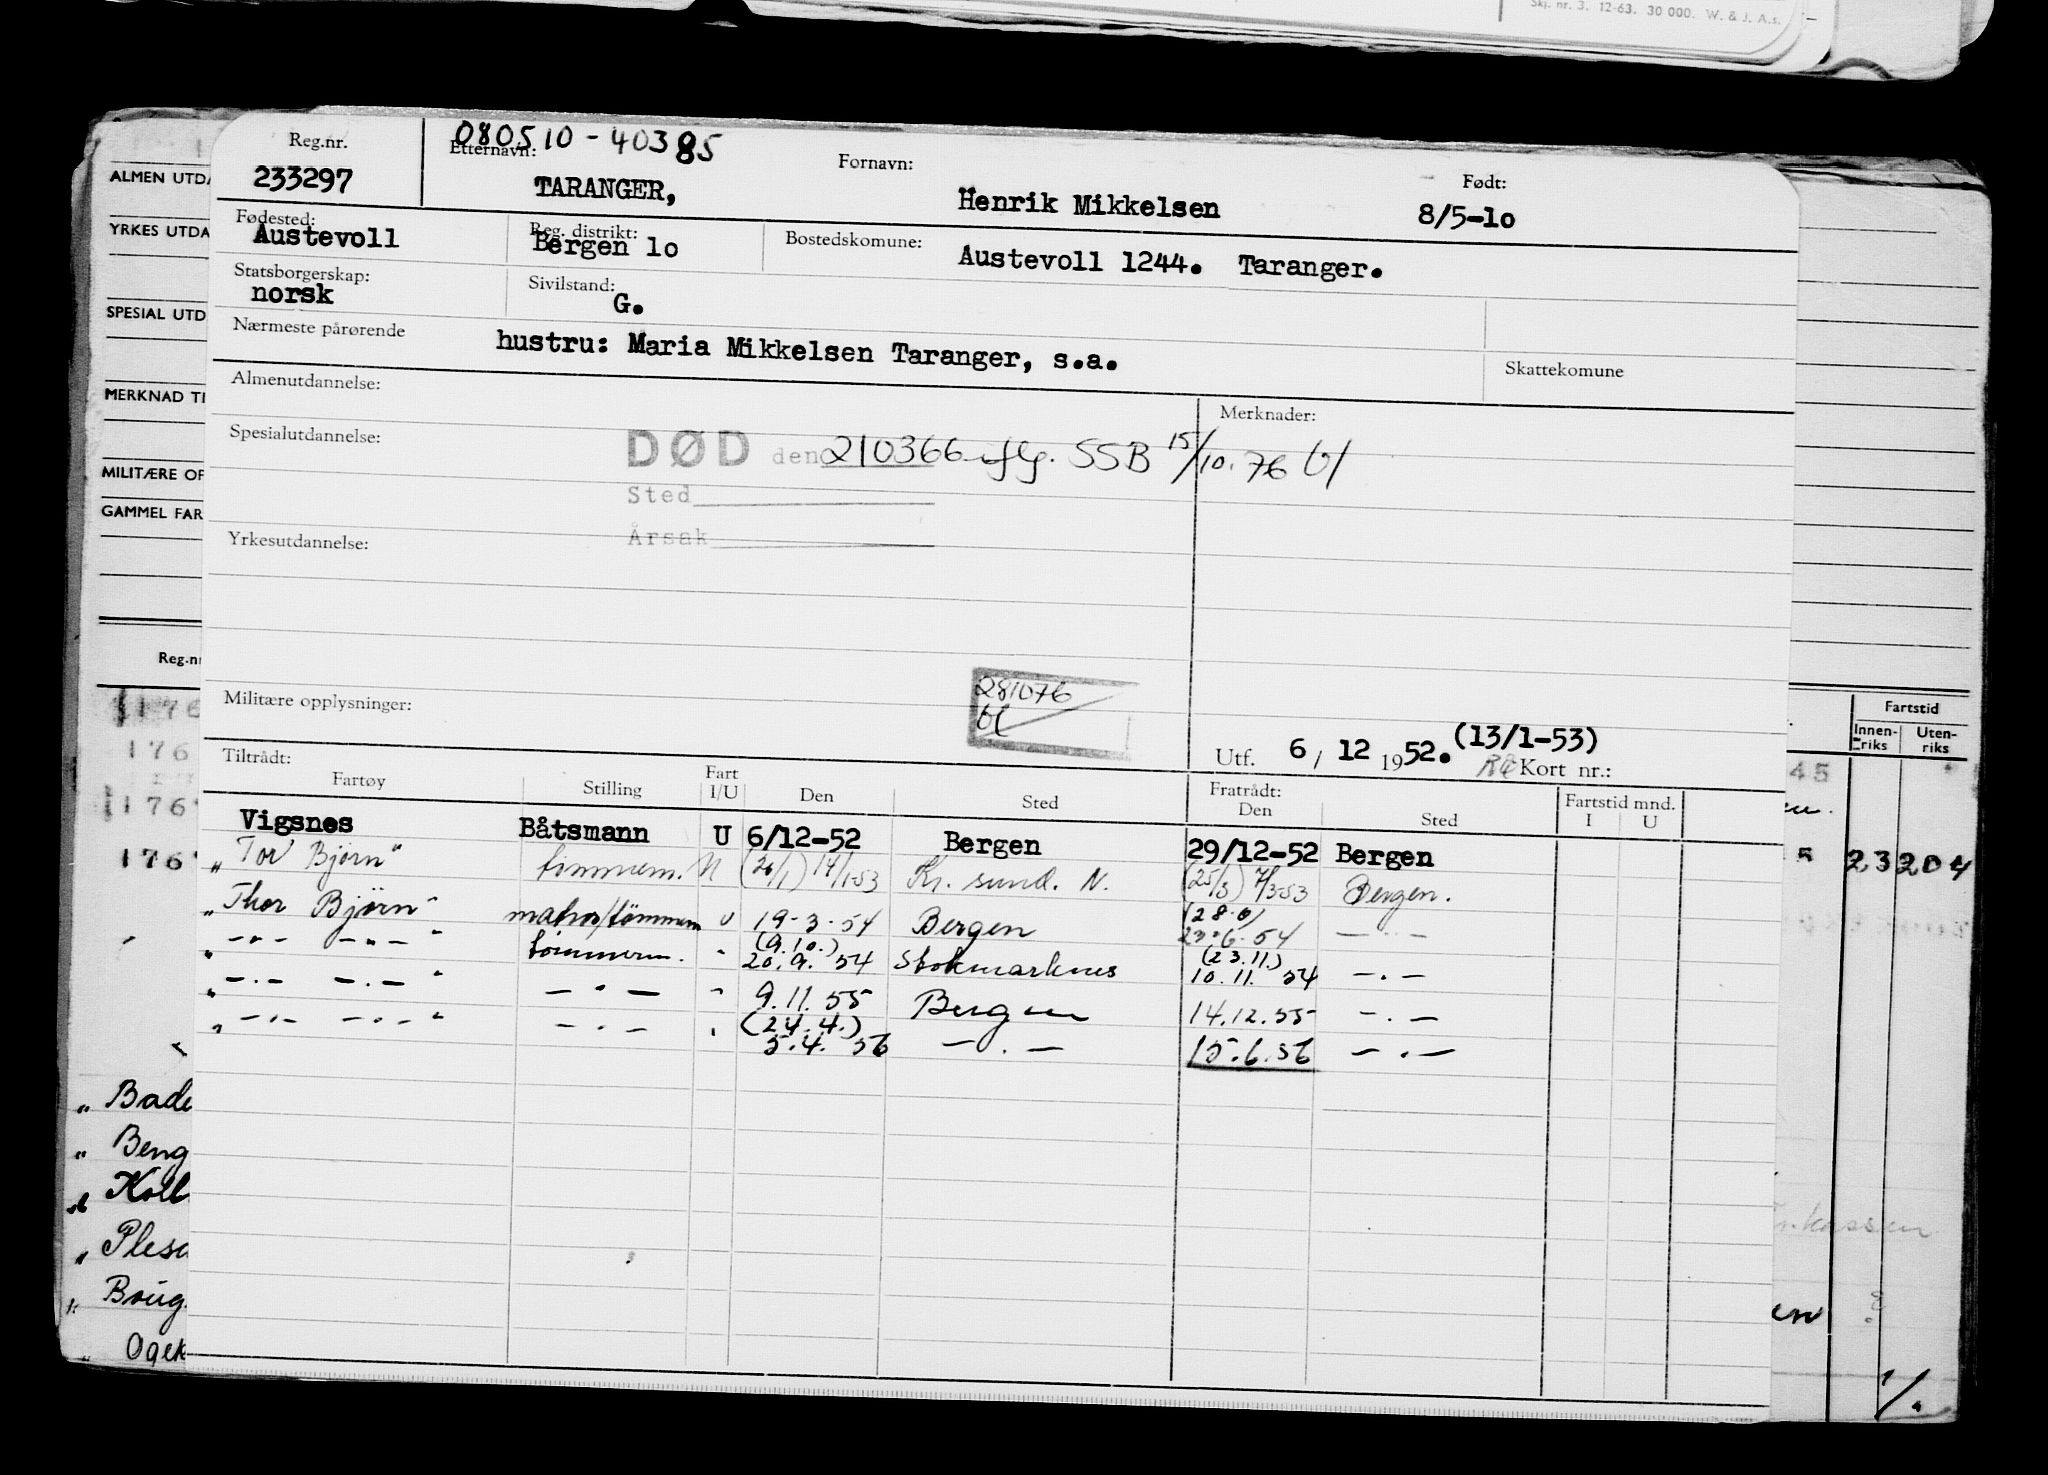 Skj. nr. 3. 12-63. 30 000. W. & J. A.s.
080510-40385
Reg.nr. Etternavn: Fornavn: Født:
233297 TARANGER, Henrik Mikkelsen 8/5-lo
Fødested: Reg. distrikt: Bostedskomune:
Austevoll Bergen lo Austevoll 1244. Taranger.
Statsborgerskap: Sivilstand:
norsk G.
Nærmeste pårørende hustru: Maria Mikkelsen Taranger, s.a. Skattekomune
Almenutdannelse: Merknader:
Spesialutdannelse: DØD den 210366 iflg. SSB 15/10.76
Sted
Årsak
Yrkesutdannelse:
281076
Militære opplysninger:
Utf. 6/ 12 1952. (13/1-53)
Kort nr.:
Tiltrådt: Fratrådt: Fartstid mnd.
Fartøy Stilling Fart I/U Den Sted Den Sted I U
Vigsnes Båtsmann U 6/12-52 Bergen 29/12-52 Bergen
"Tor Bjørn" tømmerm. N (26/1) 14/1-53 Kr. sund. N. (25/3) 7/3-53 Bergen.
"Thor Bjørn" matros/tømmerm U 19-3-54 Bergen (28.6) 23.6.54 —"—
"—"— —"—" tømmerm. " (9.10.) 20.9.54 Stokmarknes (23.11.) 10.11.54 —.—
"—.— —.—" —"— " 9.11.55 Bergen 14.12.55 —.—
"—.— —.—" —.— " (24.4.) 5.4.56 —.— 15.6.56 —.—
ALMEN UTDA
YRKES UTDA
SPESIAL UTD
MERKNAD TI
MILITÆRE OP
GAMMEL FAR
Reg.nr
176
176
176
176
" Bade
" Beng
" Koll
" Plesa
" Boug
" Ogek
Fartstid
Innen-riks Uten-riks
45
5 23 204